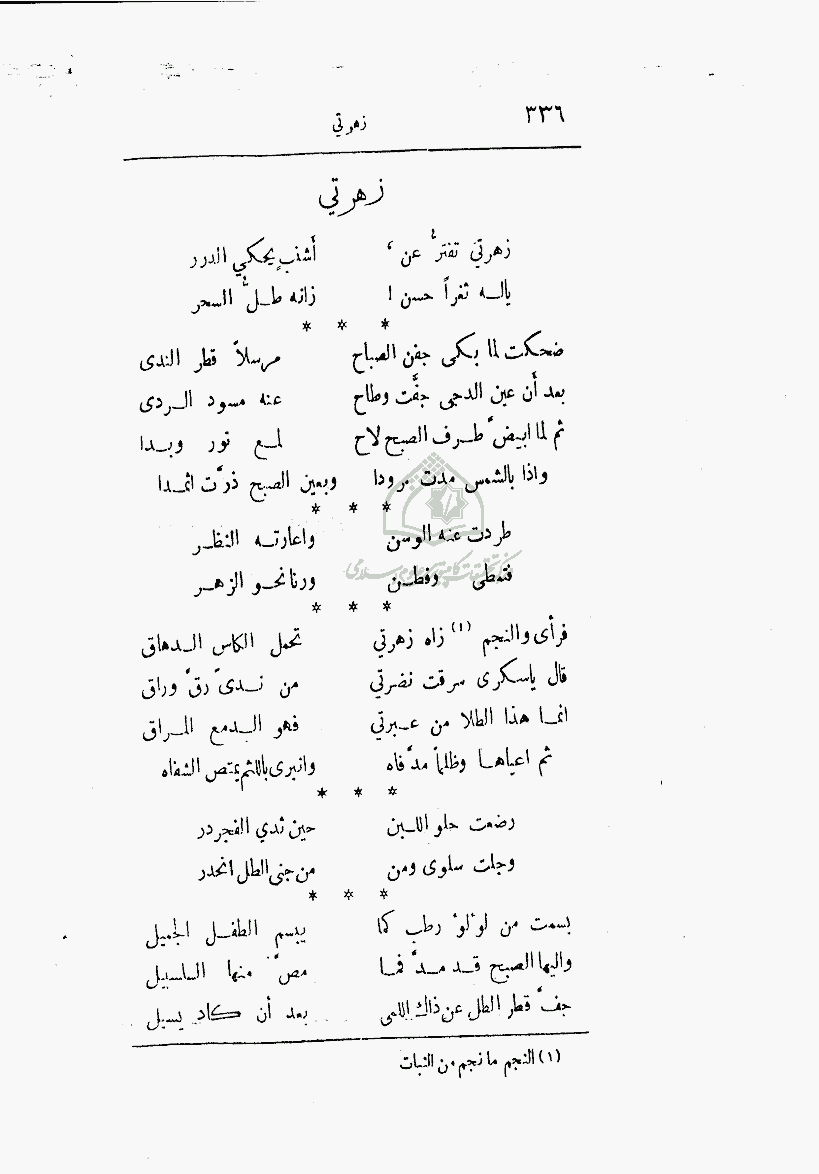 ٣٣٦
زهرتي
زهرتي
زهرتي تفترُّ عن أشنبٍ يحكي الدرر
يالـه ثغراً حسن زانه طـلُّ السحر
* * *
ضحكت لما بكى جفن الصباح مرسلاً قطر الندى
بعد أن عين الدجى جفَّت وطاح عنه مسود الـردى
ثم لما ابيضَّ طـرف الصبح لاح لمـع نور وبـدا
واذا بالشمس مدت مرودا وبعين الصبح ذرَّت اثمـدا
* * *
طردت عنه الوسن واعارتـه النظـر
فتمطى وفطـن ورنا نحـو الزهـر
* * *
فرأى والنجم (١) زاه زهرتي تحمل الكاس الـدهاق
قال ياسكرى سرقت نضرتي من نـدىً رقَّ وراق
انمـا هذا الطلا من عـبرتي فهو الـدمع المـراق
ثم اعياهـا وظلماً مدَّ فاه وانبرى باللثم يمتص الشفاه
* * *
رضعت حلو اللـبن حين ثدي الفجر در
وجلت سلوى ومن من جنى الطل انحدر
* * *
بسمت من لوءلوء رطب كما يبسم الطفـل الجميل
واليها الصبح قـد مـدَّ فمـا مصَّ منها السلسبيل
جفَّ قطر الطل عن ذاك اللمى بعد أن كاد يسيل
(١) النجم ما نجم من النبات